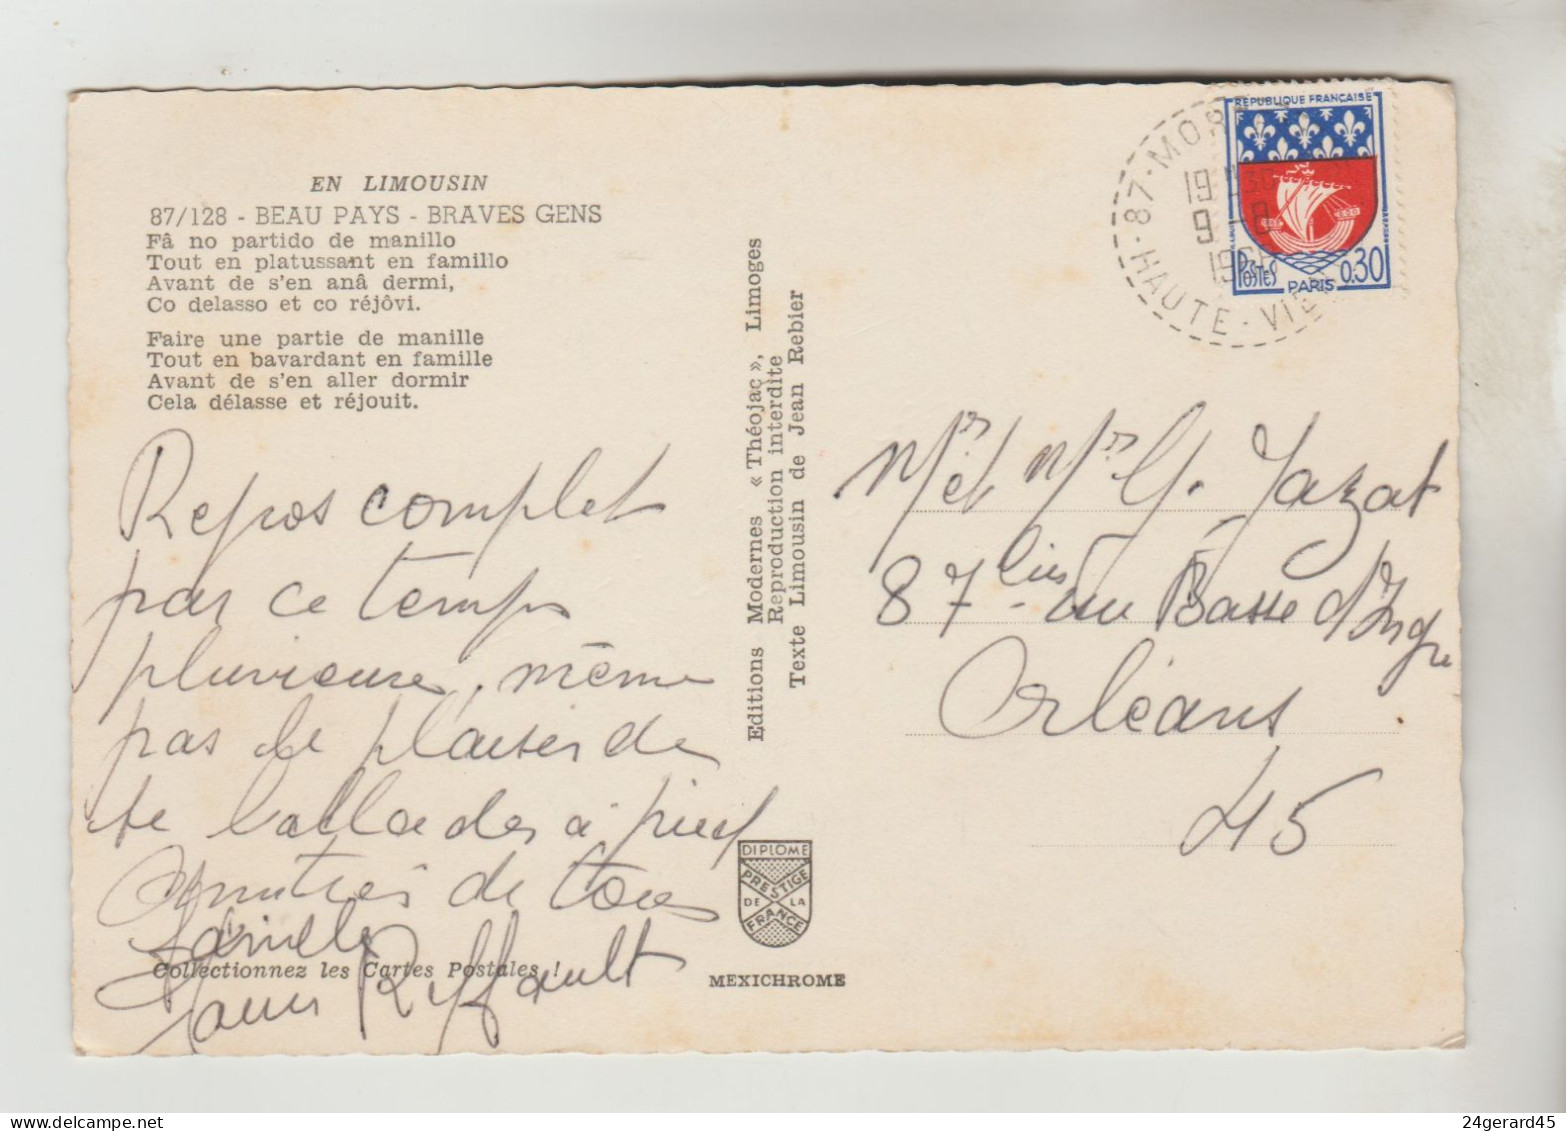 EN LIMOUSIN
87/128 - BEAU PAYS - BRAVES GENS
Fâ no partido de manillo
Tout en platussant en famillo
Avant de s'en anâ dermi,
Co delasso et co réjôvi.
Faire une partie de manille
Tout en bavardant en famille
Avant de s'en aller dormir
Cela délasse et réjouit.
Repos complet
par ce temps
pluvieux, même
pas le plaisir de
se ballades à pied
Amitiés de tous
Famille
Riffault
Collectionnez les Cartes Postales !
Editions Modernes « Théojac », Limoges
Reproduction interdite
Texte Limousin de Jean Rebier
DIPLOME
PRESTIGE
DE LA
FRANCE
MEXICHROME
87 - MOR
19
9 - 8
HAUTE - VI
REPUBLIQUE FRANÇAISE
POSTES
0,30
PARIS
Mr et Mr G. Jazat
87 bis rue Basse d'Ingre
Orléans
45
24gerard45